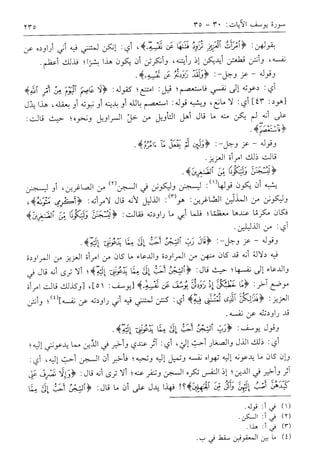 سورة يوسف الآيات: ٣٠ - ٣٥
٢٣٥
بقولهن: ﴿امْرَأَتُ الْعَزِيزِ تُرَاوِدُ فَتَاهَا عَن نَّفْسِهِ﴾، أي: إنكن لمتنني فيه أني أراوده عن
نفسه، وأنتن قطعتن أيديكن إذ رأيتنه، وأنكرتن أن يكون هذا بشرا؛ فذلك أعظم.
وقوله - عز وجل -: ﴿وَلَقَدْ رَاوَدتُّهُ عَن نَّفْسِهِ﴾.
أي: دعوته إلى نفسي فاستعصم؛ قيل: امتنع؛ كقوله: ﴿لَا عَاصِمَ الْيَوْمَ مِنْ أَمْرِ اللَّهِ﴾
[هود: ٤٣] أي: لا مانع، ويشبه قوله: استعصم بالله أو بدينه أو نبوته أو بعقله، هذا يدل
على أنه لم يكن منه ما قال أهل التأويل من حل السراويل ونحوه؛ حيث قالت:
﴿فَاسْتَعْصَمَ﴾.
وقوله - عز وجل -: ﴿وَلَئِن لَّمْ يَفْعَلْ مَا آمُرُهُ﴾.
قالت ذلك امرأة العزيز.
﴿لَيُسْجَنَنَّ وَلَيَكُونًا مِّنَ الصَّاغِرِينَ﴾.
يشبه أن يكون قولها(١): ليسجنن وليكونن في السجن(٢) من الصاغرين، أو ليسجنن
وليكونن من المذلّين الصاغرين: هو(٣): الذليل لأنه قال لامرأته: ﴿أَكْرِمِي مَثْوَاهُ﴾،
فكان مكرمًا عندها معظمًا؛ فلما أبى ما راودته فقالت: ﴿لَيُسْجَنَنَّ وَلَيَكُونًا مِّنَ الصَّاغِرِينَ﴾
أي: من الذليلين.
وقوله - عز وجل -: ﴿قَالَ رَبِّ السِّجْنُ أَحَبُّ إِلَيَّ مِمَّا يَدْعُونَنِي إِلَيْهِ﴾.
فيه دلالة أنه قد كان منهن من المراودة والدعاء ما كان من امرأة العزيز من المراودة
والدعاء إلى نفسها؛ حيث قال: ﴿رَبِّ السِّجْنُ أَحَبُّ إِلَيَّ مِمَّا يَدْعُونَنِي إِلَيْهِ﴾؛ ألا ترى أنه قال في
موضع آخر: ﴿مَا خَطْبُكُنَّ إِذْ رَاوَدتُّنَّ يُوسُفَ عَن نَّفْسِهِ﴾ [يوسف: ٥١]، [وكذلك قالت امرأة
العزيز: ﴿فَذَٰلِكُنَّ الَّذِي لُمْتُنَّنِي فِيهِ﴾ أي: كنتن لمتنني فيه أني راودته عن نفسه](٤)؛ وأنتن
قد راودتنه عن نفسه.
وقول يوسف: ﴿رَبِّ السِّجْنُ أَحَبُّ إِلَيَّ مِمَّا يَدْعُونَنِي إِلَيْهِ﴾.
أي: ذلك الذل والصغار أحبّ إليّ، أي: آثر عندي وأخير في الدِّين مما يدعونني إليه؛
وإن كان ما يدعونه إليه تهواه نفسه وتميل إليه وتحبه؛ فأخبر أن السجن أحب إليه، أي:
آثر وأخير في الدين؛ إذ النفس تكره السجن وتنفر عنه؛ ألا ترى أنه قال: ﴿وَإِلَّا تَصْرِفْ عَنِّي
كَيْدَهُنَّ أَصْبُ إِلَيْهِنَّ وَأَكُن مِّنَ الْجَاهِلِينَ﴾؟! فهذا يدل على أن ما قال: ﴿رَبِّ السِّجْنُ أَحَبُّ إِلَيَّ مِمَّا
(١) في أ: قوله.
(٢) في أ: السكن.
(٣) في أ: هذا.
(٤) ما بين المعقوفين سقط في ب.